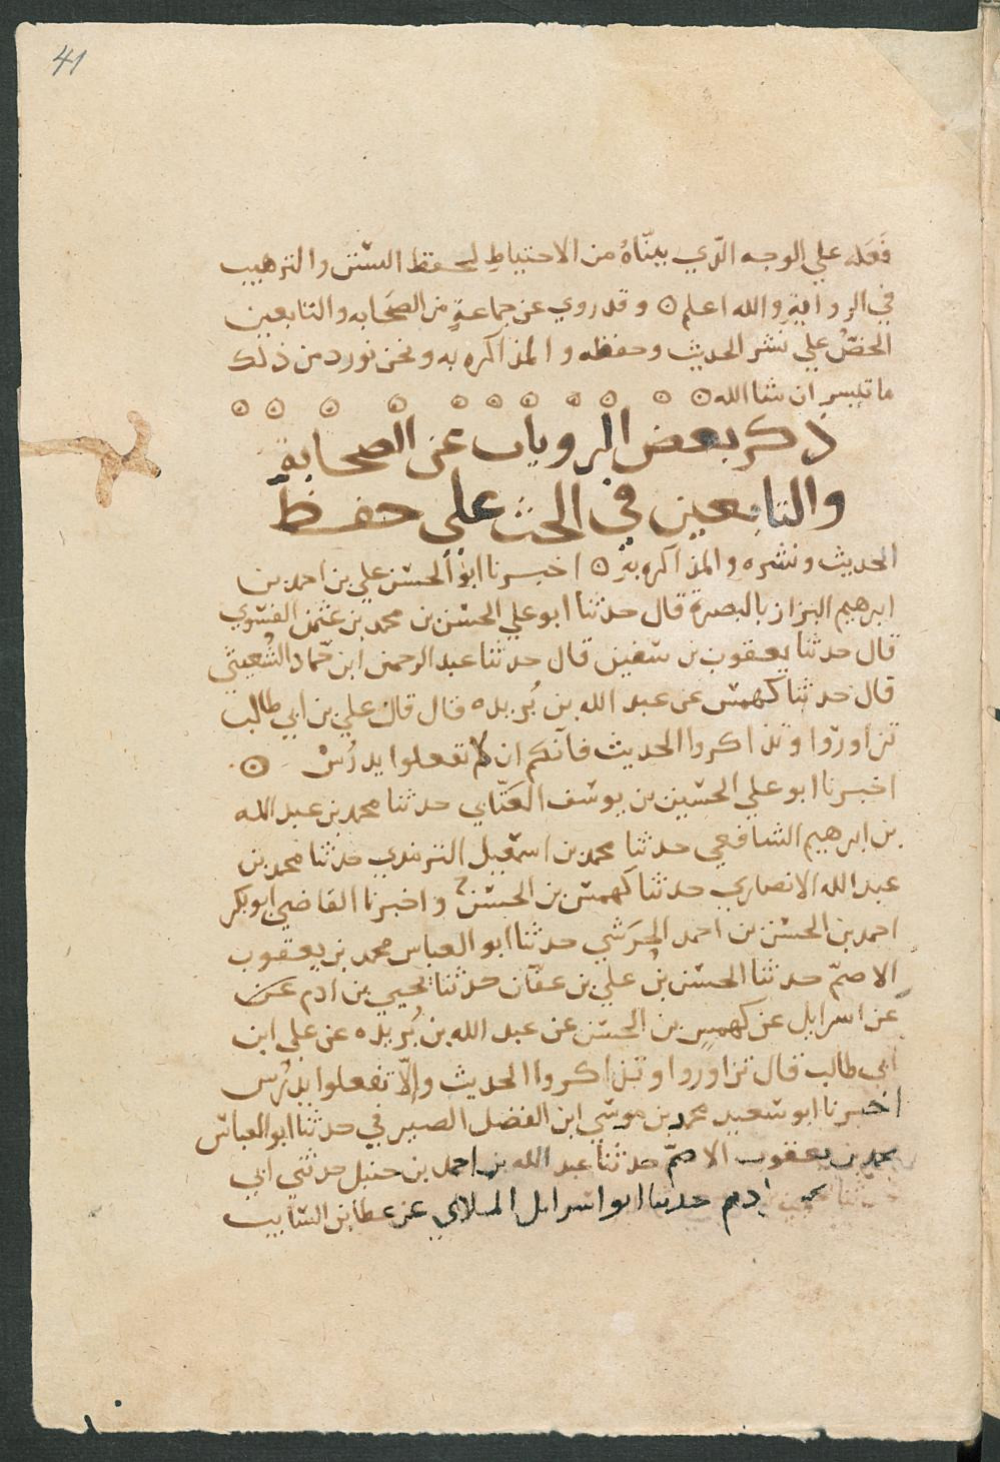 41
فَعَله علي الوجه الّذي بينّاهُ من الاحتياطِ لحفظ السّنن والترهيب
في الروايةِ والله اعلم ۝ وقد روي عن جماعةٍ من الصَحَابه والتابعين
الحضّ علي نَشْر الحديث وحفظه والمذاكره به ونحن نورد من ذلك
ما تيسر ان شا الله ۝
ذكر بعض الروايات عن الصحابة
والتابعين في الحث على حفظ
الحديث ونشره والمذاكره بهِ ۝ اخبرنا ابو الحسن علي بن احمد بن
ابرهيم البزاز بالبصرة قال حدثنا ابو علي الحسن بن محمد بن عثمن الفسوي
قال حدثنا يعقوب بن سفين قال حدثنا عبد الرحمن ابن حَماد الشُعيثي
قال حدثنا كهمس عن عبد الله بن بُريده قال قال علي بن ابي طالب
تزاورُوا وتذاكروا الحديث فانكم ان لا تفعلوا يدرُسْ ۝
اخبرنا ابو علي الحسين بن يوسف العَتّابي حدثنا محمد بن عبد الله
بن ابرهيم الشافعي حدثنا محمد بن اسمعيل الترمذي حدثنا محمد بن
عبد الله الانصاري حدثنا كهمس بن الحسن ح واخبرنا القاضي ابو بكر
احمد بن الحسن بن احمد الحِرَشي حدثنا ابو العباس محمد بن يعقوب
الاصمّ حدثنا الحسن بن علي بن عفّان حدثنا يحيي بن ادم عن
عن اسرايل عن كهمسٍ بن الحسن عن عبد الله بن بُريده عن علي ابن
ابي طالب قال تزاوروا وتذاكروا الحديث وإلاّ تفعلوا يدرُس
اخبرنا ابو سَعيد محمد بن موسي ابن الفضل الصيرفي حدثنا ابو العباس
محمد بن يعقوب الاصمّ حدثنا عبد الله بن احمد بن حنبل حدثني ابي
حدثنا يحيي بن ادم حدثنا ابو اسرايل الملاي عن عطا بن السّايب